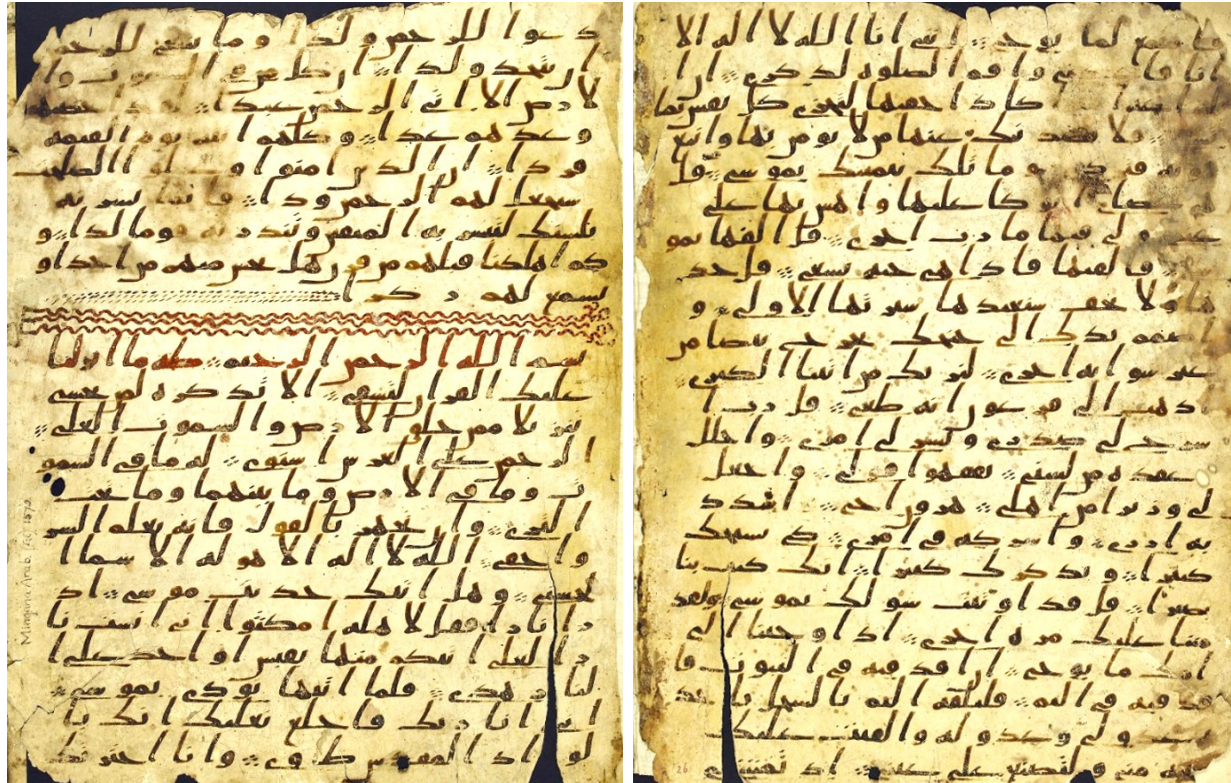 دعوا للرحمن ولدا وما ينبغي للرحمن
ان يتخذ ولدا ان كل من في السموت وا
لارض الا اتي الرحمن عبدا لقد احصيهم
وعدهم عدا وكلهم اتيه يوم القيمه
فردا ان الذين امنوا وعملوا الصلحت
سيجعل لهم الرحمن ودا فانما يسرنه
بلسنك لتبشر به المتقين وتنذر به قوما لدا و
كم اهلكنا قبلهم من قرن هل تحس منهم من احد او
تسمع لهم ركزا
بسم الله الرحمن الرحيم طه ما انزلنا
عليك القران لتشقى الا تذكره لمن يخشى
تنزيلا ممن خلق الارض والسموت العلى
الرحمن على العرش استوى له ما في السمو
ت وما في الارض وما بينهما وما تحت
الثرى وان تجهر بالقول فانه يعلم السر
واخفى الله لا اله الا هو له الاسما ا
لحسنى وهل اتيك حديث موسى اذ
را نارا فقل لاهله امكثوا اني انست نا
را لعلي اتيكم منها بقبس او اجد على ا
لنار هدى فلما اتيها نودي يموسى
اني انا ربك فاخلع نعليك انك با
لواد المقدس طوى وانا اخترتك
Mingana Arab. 1572
فاستمع لما يوحى انني انا الله لا اله الا
انا فاعبدني واقم الصلوه لذكري ان ا
اكاد اخفيها لتجزى كل نفس بما
فلا يصدنك عنها من لا يومن بها واتبع
هويه فتردى وما تلك بيمينك يموسى قل
هي عصاي اتوكا عليها واهش بها على
غنمي ولي فيها مارب اخرى قل القها يمو
سى فالقيها فاذا هي حيه تسعى قل خذ
ها ولا تخف سنعيدها سيرتها الاولى و
اضمم يدك الى جنحك تخرج بيضا من
غير سو ايه اخرى لنريك من ايتنا الكبرى
اذهب الى فرعون انه طغى قل رب ا
شرح لي صدري ويسر لي امري واحلل
عقده من لسني يفقهوا قولي واجعل
لي وزيرا من اهلي هرون اخي اشدد
به ازري واشركه في امري كي نسبحك
كثيرا ونذكرك كثيرا انك كنت بنا
بصيرا قل قد اوتيت سولك يموسى ولقد
مننا عليك مره اخرى اذ اوحينا الى
امك ما يوحى ان اقذفيه في التبوت فا
قذفيه في اليم فليلقه اليم بالسحل ياخذ
ه عدو لي وعدو له والقيت عليك
محبه مني ولتصنع على عيني اذ تمشي